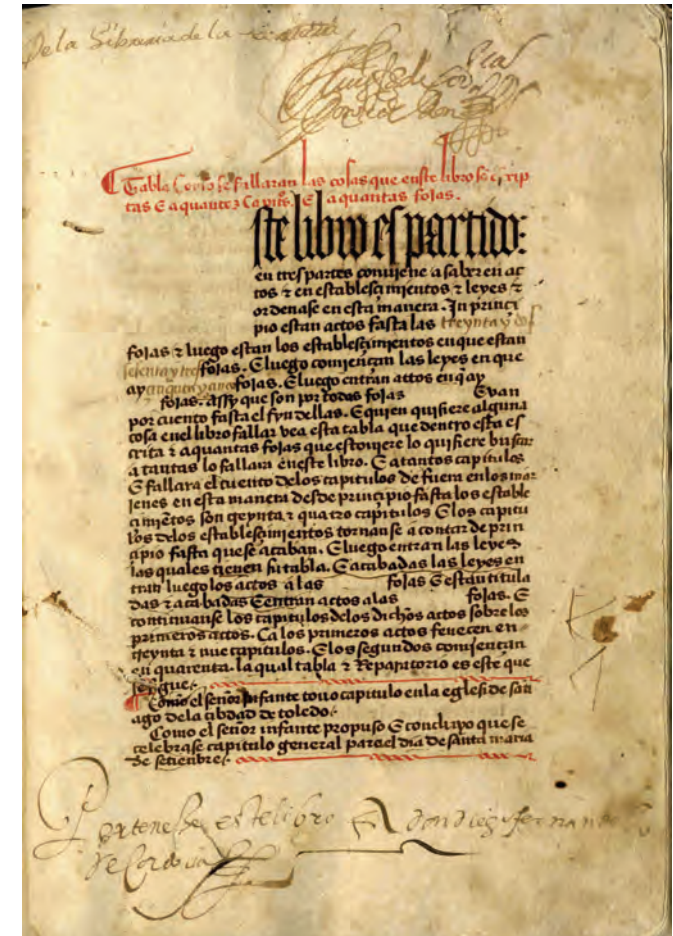 De la libreria de la
Tabla Como se fallaran las cosas que eneste libro sō escrip
tas E aquantos Capitos. E aquantas fojas.
ste libro es partido:
en tres partes conuiene asaber en ac
tos ⁊ en establescimientos ⁊ leyes ⁊
ordenase en esta manera. In princi
pio estan actos fasta las treynta y dos
fojas ⁊ luego estan los establescimientos en que estan
setenta y tres fojas. E luego comiençan las leyes en que
ay cinquenta y una fojas. E luego entran attos en q̄ ay
fojas. assy que son por todas fojas E van
por cuento fasta el fyn dellas. E quien quisiere alguna
cosa enel libro fallar vea esta tabla que dentro esta es
crita ⁊ aquantas fojas que estouiere lo quisiere buscar
a tantas lo fallara eneste libro. E atantos capitulos
E fallara el cuento delos capitulos de fuera enlos mar
jenes en esta manera desde principio fasta los estable
cimiētos son treynta ⁊ quatro capitulos E los capitu
los delos establescimientos tornanse a contar de prin
cipio fasta que se acaban. E luego entran las leyes
las quales tienen su tabla. E acabadas las leyes en
tran luego los actos a las fojas E estan titula
das ⁊ acabadas E entran actos a las fojas. E
continuanse los capitulos delos dichos actos sobre los
primeros actos. Ca los primeros actos fenecen en
treynta ⁊ nue capitulos. E los segundos comiençan
en quarenta. la qual tabla ⁊ Reparatorio es este que
se sygue.
Como el señor Infante touo capitulo enla eglesia de santi
ago dela cibdad de toledo.
Como el señor infante propuso E concluyo que se
celebrase capitulo general para el dia de santa maria
de setienbre.
Pertenesce este libro A don diego fernand
de Cordoua